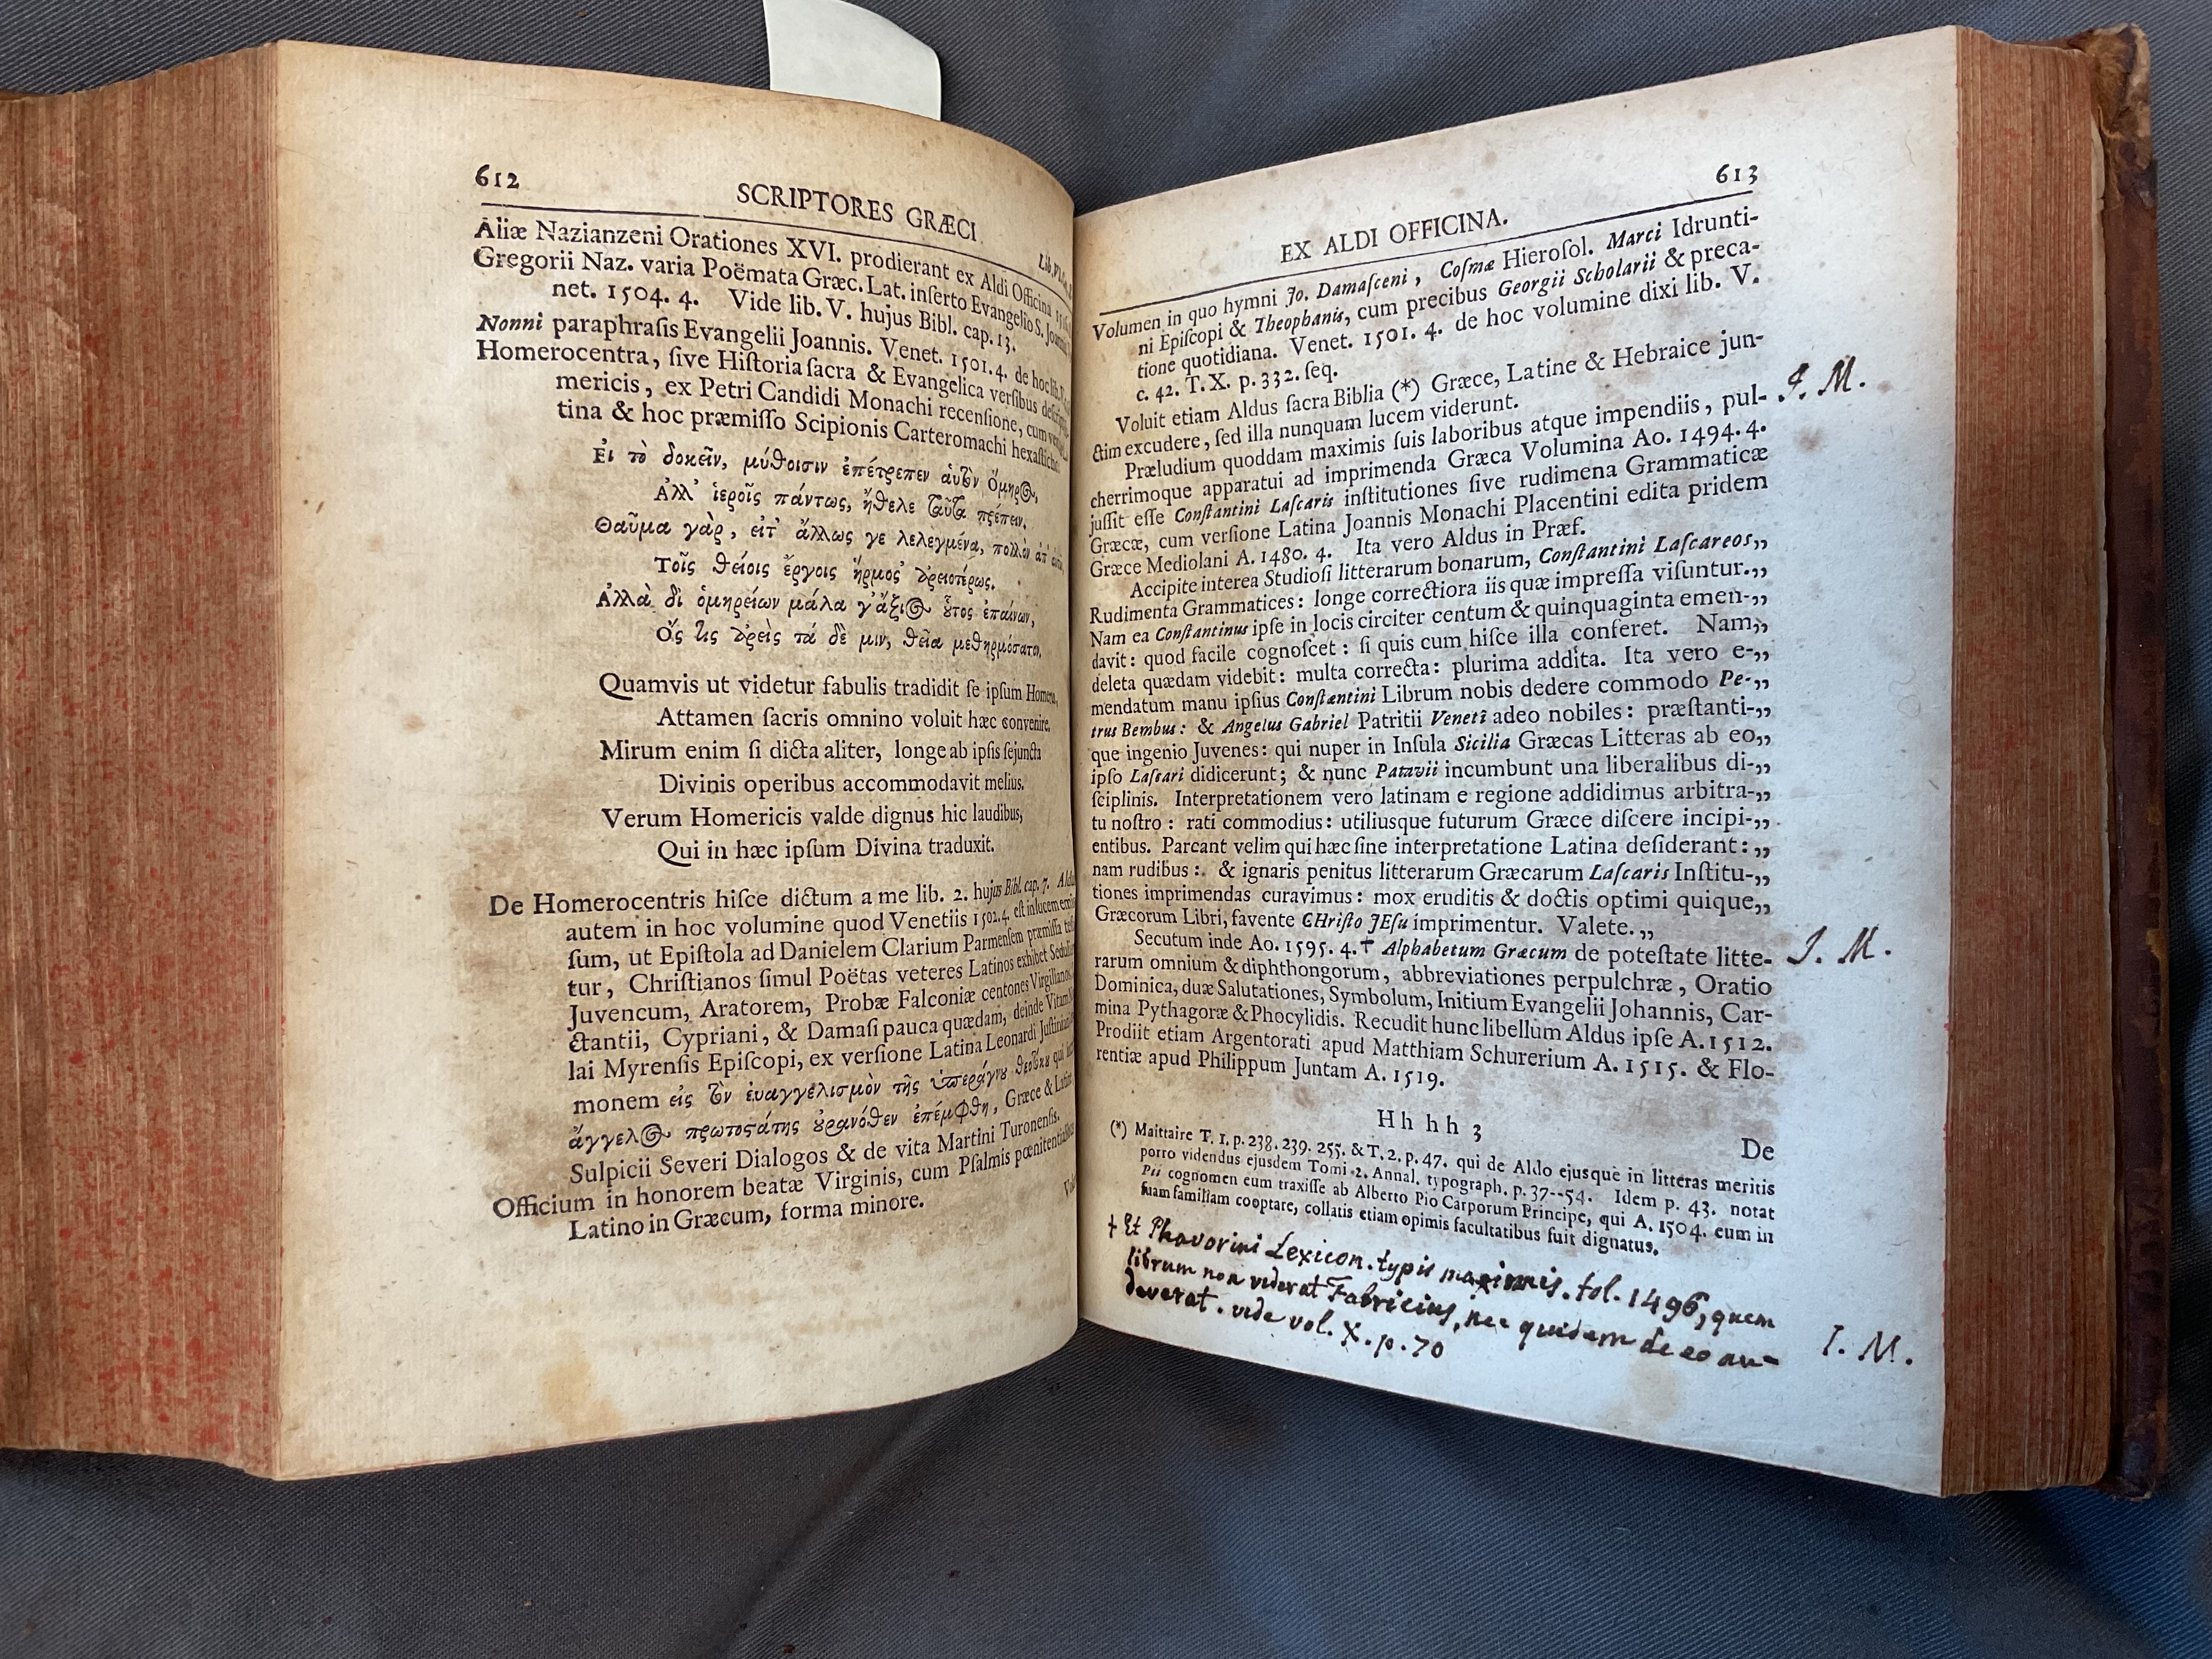 612
SCRIPTORES GRÆCI
Aliæ Nazianzeni Orationes XVI. prodierant ex Aldi Officina
Gregorii Naz. varia Poëmata Græc. Lat. inserto Evangelio S. Joannis
net. 1504. 4. Vide lib. V. hujus Bibl. cap. 13.
Nonni paraphrasis Evangelii Joannis. Venet. 1501. 4. de hoc
Homerocentra, sive Historia sacra & Evangelica versibus
mericis, ex Petri Candidi Monachi recensione, cum
tina & hoc præmisso Scipionis Carteromachi hexasticho
Εἰ τὸ δοκεῖν, μύθοισιν ἐπέτρεπεν αὑτὸν Ὅμηρος,
Ἀλλ' ἱεροῖς πάντως, ἤθελε ταῦτα πρέπειν.
Θαῦμα γὰρ, εἰτ' ἄλλως γε λελεγμένα, πολλὸν ἀπ'
Τοῖς θείοις ἔργοις ἥρμοσ' ἀρειοτέρως.
Ἀλλὰ δὶ ὁμηρείων μάλα γ' ἄξιος οὗτος ἐπαίνων,
Ὅς τις ἀρεὶς τά δὲ μιν, θεῖα μεθηρμόσατο.
Quamvis ut videtur fabulis tradidit se ipsum Homerus,
Attamen sacris omnino voluit hæc convenire.
Mirum enim si dicta aliter, longe ab ipsis sejuncta
Divinis operibus accommodavit melius.
Verum Homericis valde dignus hic laudibus,
Qui in hæc ipsum Divina traduxit.
De Homerocentris hisce dictum a me lib. 2. hujus Bibl. cap. 7.
autem in hoc volumine quod Venetiis 1502. 4. est in lucem
sum, ut Epistola ad Danielem Clarium Parmensem præmissa
tur, Christianos simul Poëtas veteres Latinos exhibet Sedulium
Juvencum, Aratorem, Probæ Falconiæ centones Virgilianos,
ctantii, Cypriani, & Damasi pauca quædam, deinde Vitam
lai Myrensis Episcopi, ex versione Latina Leonardi Justiniani
monem εἰς τὸν ἐυαγγελισμὸν τῆς ὑπεράγνου θεοτόκου qui
ἄγγελος πρωτοστάτης οὐρανόθεν ἐπέμφθη, Græce & Latine
Sulpicii Severi Dialogos & de vita Martini Turonensis.
Officium in honorem beatæ Virginis, cum Psalmis pœnitentialibus
Latino in Græcum, forma minore.
613
EX ALDI OFFICINA.
Volumen in quo hymni Jo. Damasceni, Cosmæ Hierosol. Marci Idrunti-
ni Episcopi & Theophanis, cum precibus Georgii Scholarii & preca-
tione quotidiana. Venet. 1501. 4. de hoc volumine dixi lib. V.
c. 42. T. X. p. 332. seq.
Voluit etiam Aldus sacra Biblia (*) Græce, Latine & Hebraice jun-
ctim excudere, sed illa nunquam lucem viderunt.
Præludium quoddam maximis suis laboribus atque impendiis, pul- J. M.
cherrimoque apparatui ad imprimenda Græca Volumina Ao. 1494. 4.
jussit esse Constantini Lascaris institutiones sive rudimena Grammaticæ
Græcæ, cum versione Latina Joannis Monachi Placentini edita pridem
Græce Mediolani A. 1480. 4. Ita vero Aldus in Præf.
Accipite interea Studiosi litterarum bonarum, Constantini Lascareos,,
Rudimenta Grammatices: longe correctiora iis quæ impressa visuntur.,,
Nam ea Constantinus ipse in locis circiter centum & quinquaginta emen-,,
davit: quod facile cognoscet: si quis cum hisce illa conferet. Nam,,
deleta quædam videbit: multa correcta: plurima addita. Ita vero e-,,
mendatum manu ipsius Constantini Librum nobis dedere commodo Pe-,,
trus Bembus: & Angelus Gabriel Patritii Veneti adeo nobiles: præstanti-,,
que ingenio Juvenes: qui nuper in Insula Sicilia Græcas Litteras ab eo,,
ipso Lascari didicerunt; & nunc Patavii incumbunt una liberalibus di-,,
sciplinis. Interpretationem vero latinam e regione addidimus arbitra-,,
tu nostro: rati commodius: utiliusque futurum Græce discere incipi-,,
entibus. Parcant velim qui hæc sine interpretatione Latina desiderant:,,
nam rudibus: & ignaris penitus litterarum Græcarum Lascaris Institu-,,
tiones imprimendas curavimus: mox eruditis & doctis optimi quique,,
Græcorum Libri, favente CHristo JEsu imprimentur. Valete.,,
Secutum inde Ao. 1595. 4.† Alphabetum Græcum de potestate litte- J. M.
rarum omnium & diphthongorum, abbreviationes perpulchræ, Oratio
Dominica, duæ Salutationes, Symbolum, Initium Evangelii Johannis, Car-
mina Pythagoræ & Phocylidis. Recudit hunc libellum Aldus ipse A. 1512.
Prodiit etiam Argentorati apud Matthiam Schurerium A. 1515. & Flo-
rentiæ apud Philippum Juntam A. 1519.
Hhhh 3
De
(*) Maittaire T. 1. p. 238. 239. 255. & T. 2. p. 47. qui de Aldo ejusque in litteras meritis
porro videndus ejusdem Tomi 2. Annal. typograph. p. 37--54. Idem p. 43. notat
Pii cognomen eum traxisse ab Alberto Pio Carporum Principe, qui A. 1504. eum in
suam familiam cooptare, collatis etiam opimis facultatibus suit dignatus.
† Et Phavorini Lexicon. typis maximis. fol. 1496, quem
librum non viderat Fabricius, nec quidem de eo au-
deverat. vide vol. X. p. 70 I. M.